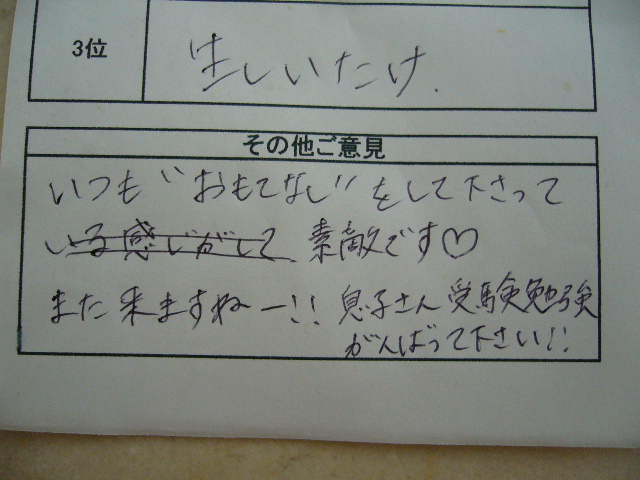 3位
生しいたけ.
その他ご意見
いつも"おもてなし"をして下さって
いる感じがして 素敵です♡
また来ますねー!! 息子さん 受験勉強
がんばって下さい!!